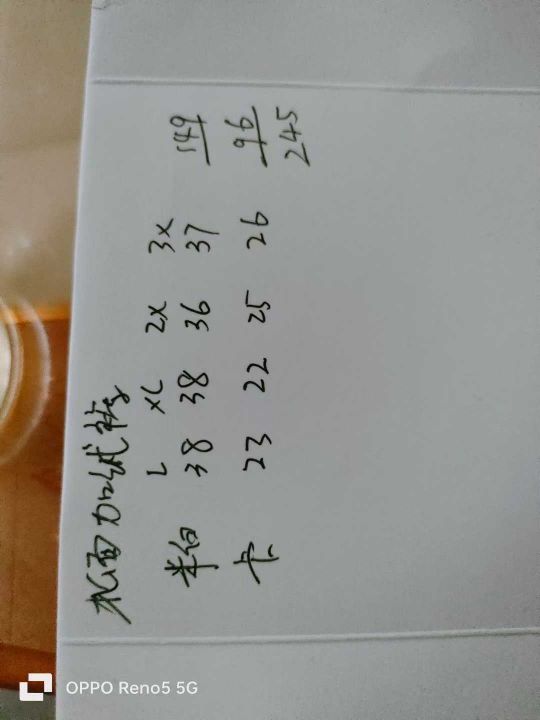 加绒裤
L XL 2X 3X
米白 38 38 36 37 149
卡 23 22 25 26 96
245
OPPO Reno5 5G